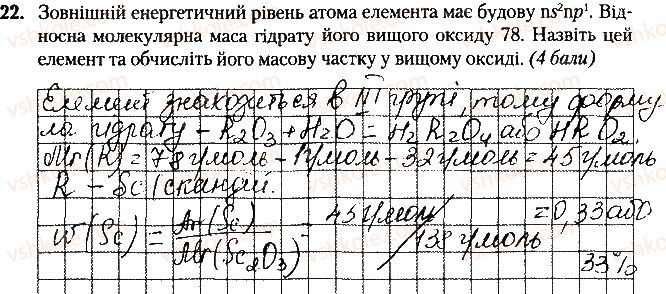 22. Зовнішній енергетичний рівень атома елемента має будову ns²np¹. Від-
носна молекулярна маса гідрату його вищого оксиду 78. Назвіть цей
елемент та обчисліть його масову частку у вищому оксиді. (4 бали)
Елемент знаходиться в III групі, тому форму
ла гідрату – R₂O₃ + H₂O = H₂R₂O₄ або HRO₂.
Mr(R) = 78 г/моль – 1 г/моль – 32 г/моль = 45 г/моль
R – Sc (скандій.
w(Sc) = Ar(Sc) / Mr(Sc₂O₃) = 45 г/моль / 138 г/моль = 0,33 або
33%